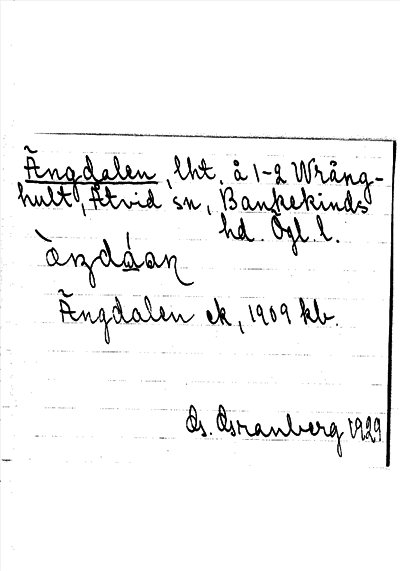 Ängdalen, lht. å 1-2 Wrång-
hult, Åtvid sn, Bankekinds
hd. Ögl. l.
Ängdalen ek, 1909 kb.
G. Granberg 1929